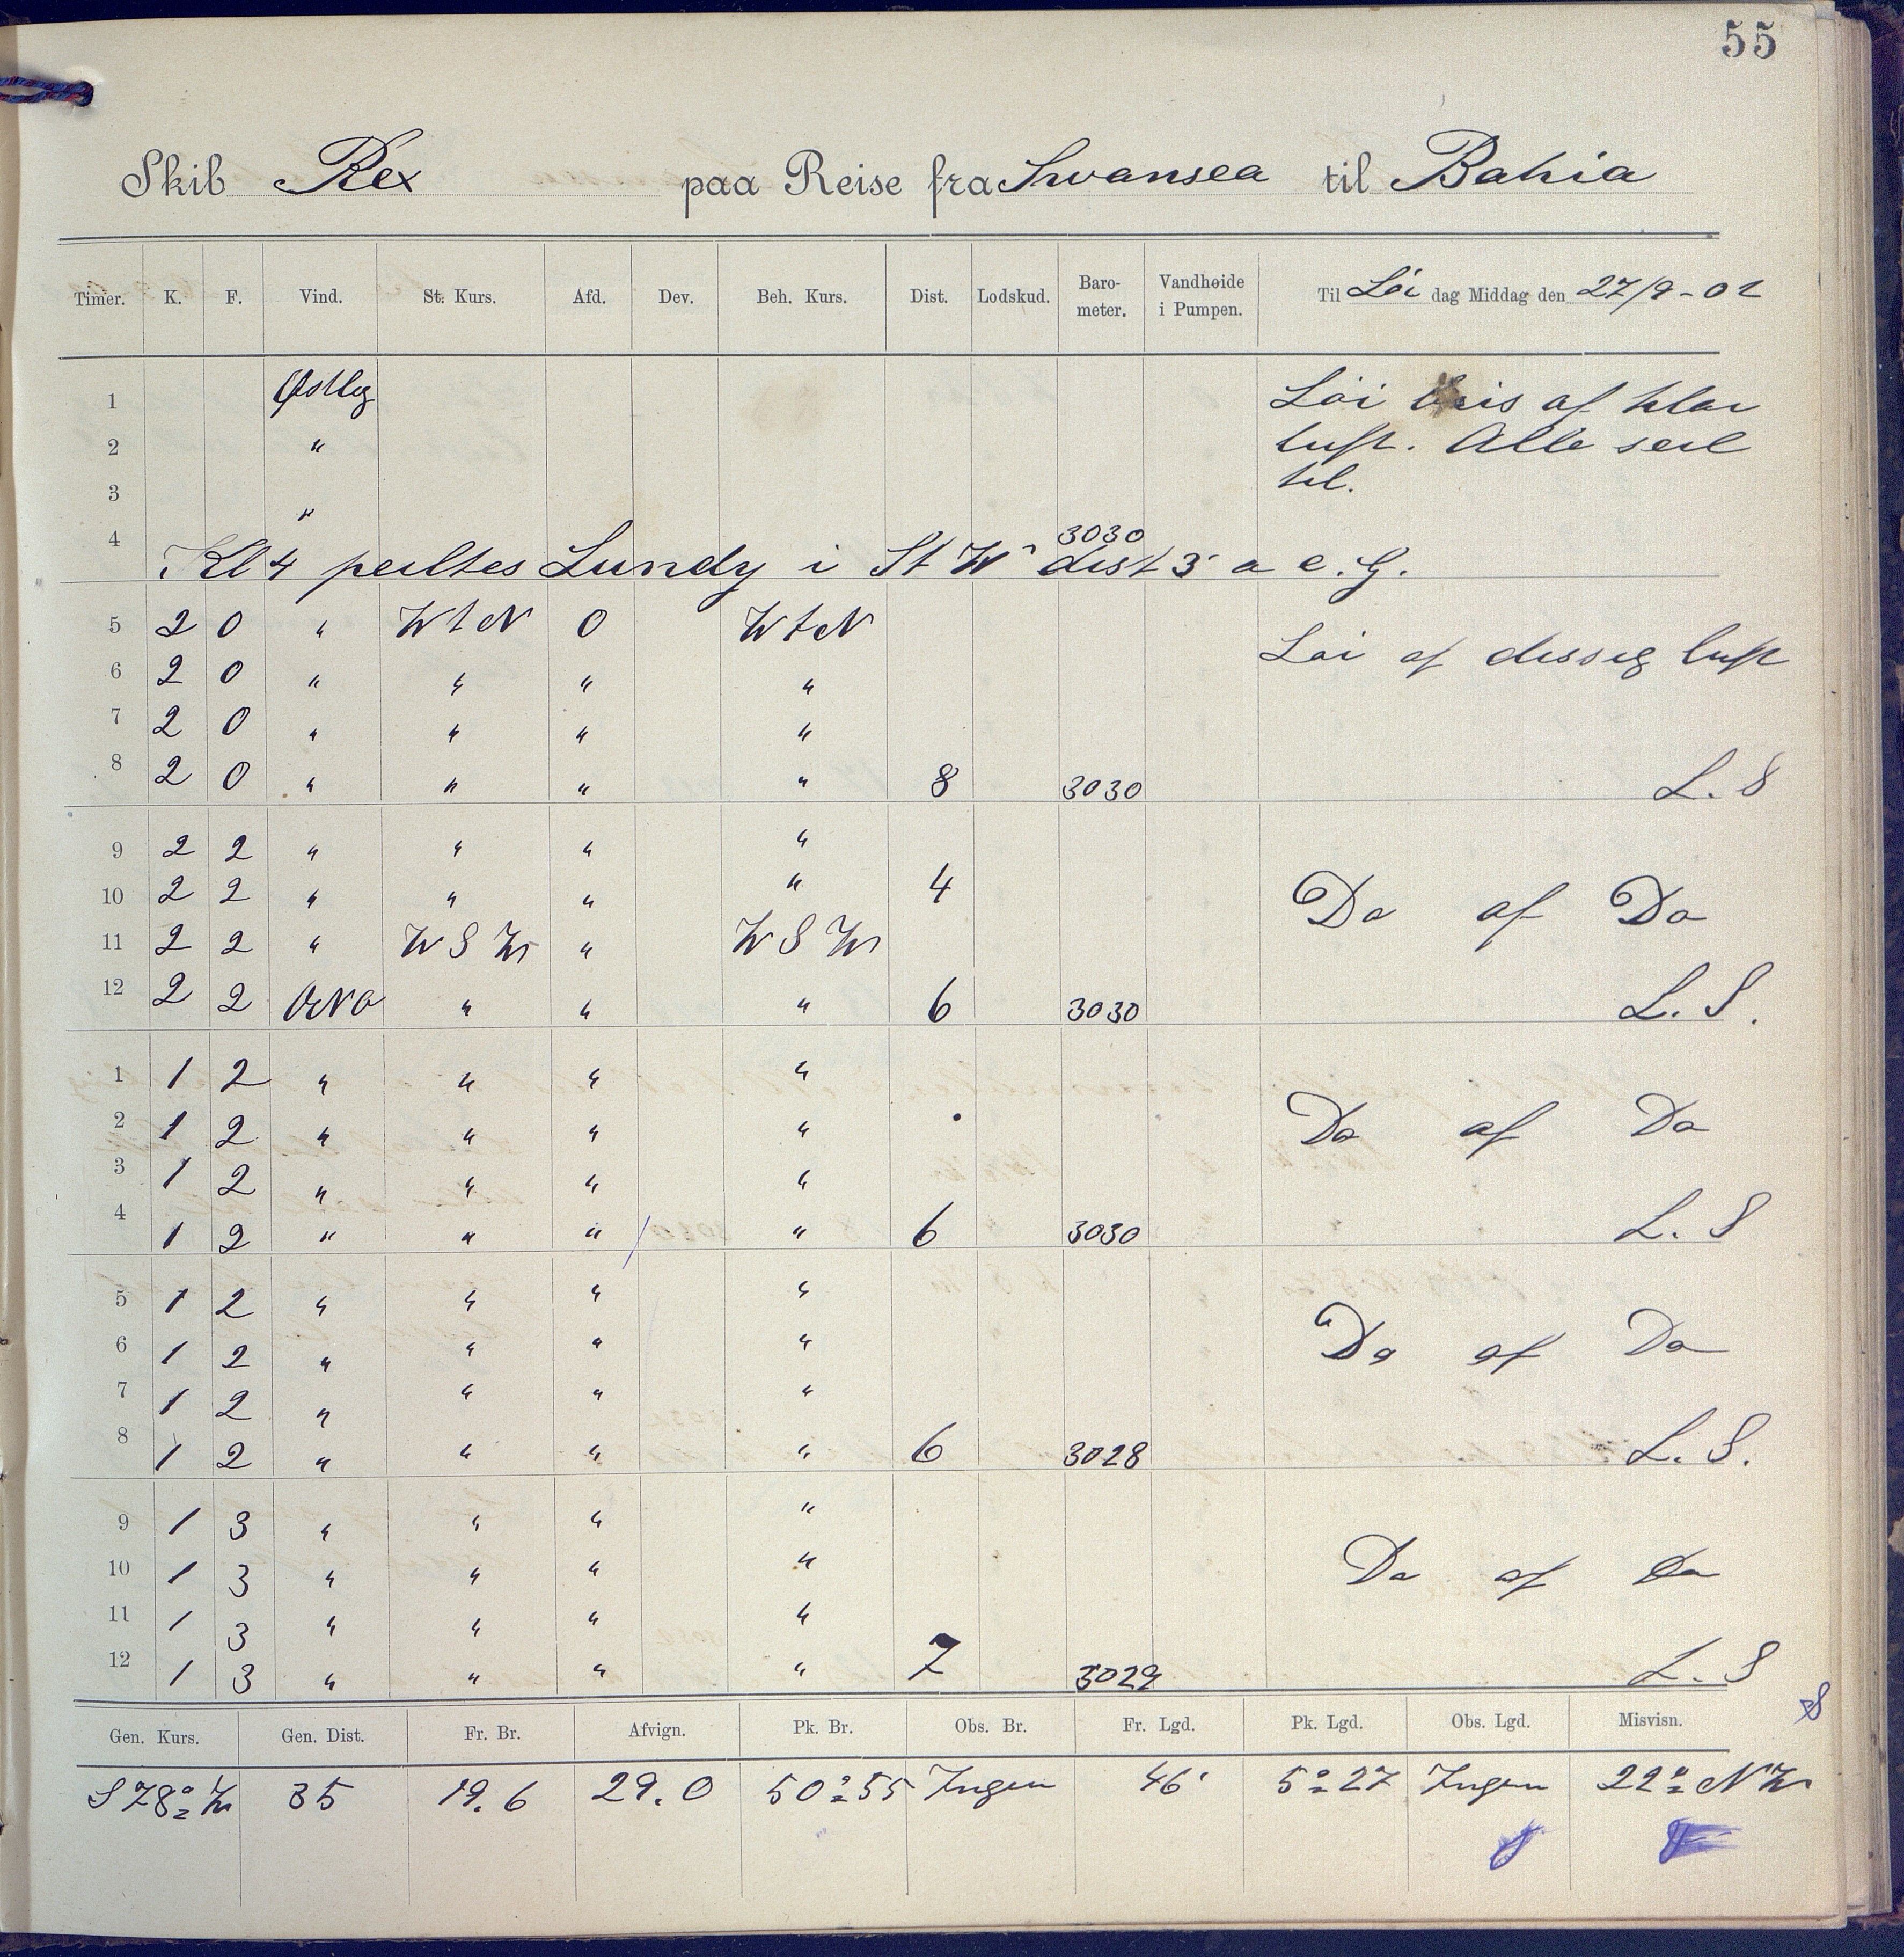 55
Skib Rex paa Reise fra Swansea til Bahia
Timer. K. F. Vind. St. Kurs. Afd. Dev. Beh. Kurs. Dist. Lodskud. Barometer. Vandhøide i Pumpen. Til Lör dag Middag den 27/9-02
1 Østlig Löi bris af klar
2 " luft. Alle seil
3 " til.
4 3030
Kl 4 peiltes Lundy i St W dist 3' a e. G.
5 2 0 " WtN 0 WtN
Löi af disseg luft
6 2 0 " " " "
7 2 0 " " " "
8 2 0 " " " " 8 3030 L. S
9 2 2 " " " "
10 2 2 " " " " 4 Do af Do
11 2 2 " WSW " WSW
12 2 2 ONO " " " 6 3030 L. S.
1 1 2 " " " "
2 1 2 " " " " Do af Do
3 1 2 " " " "
4 1 2 " " " " 6 3030 L. S
5 1 2 " " " "
6 1 2 " " " " Do af Do
7 1 2 " " " "
8 1 2 " " " " 6 3028 L. S.
9 1 3 " " " "
10 1 3 " " " " Do af Do
11 1 3 " " " "
12 1 3 " " " " 7 3029 L. S
Gen. Kurs. Gen. Dist. Fr. Br. Afvign. Pk. Br. Obs. Br. Fr. Lgd. Pk. Lgd. Obs. Lgd. Misvisn.
S 78° W 35 19.6 29.0 50° 55 Ingen 46' 5° 27 Ingen 22° NW